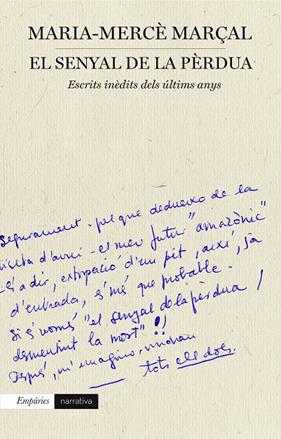 MARIA-MERCÈ MARÇAL
EL SENYAL DE LA PÈRDUA
Escrits inèdits dels últims anys
Segurament - pel que dedueixo de la
visita d'avui - el meu futur "amazònic"
- és a dir, extirpació d'un pit, així, ja
d'entrada, és més que probable.
Si és només "el senyal de la pèrdua /
desmentint la mort" !!
Després, m'imagino, vindran
— tots els dos.
Empúries narrativa